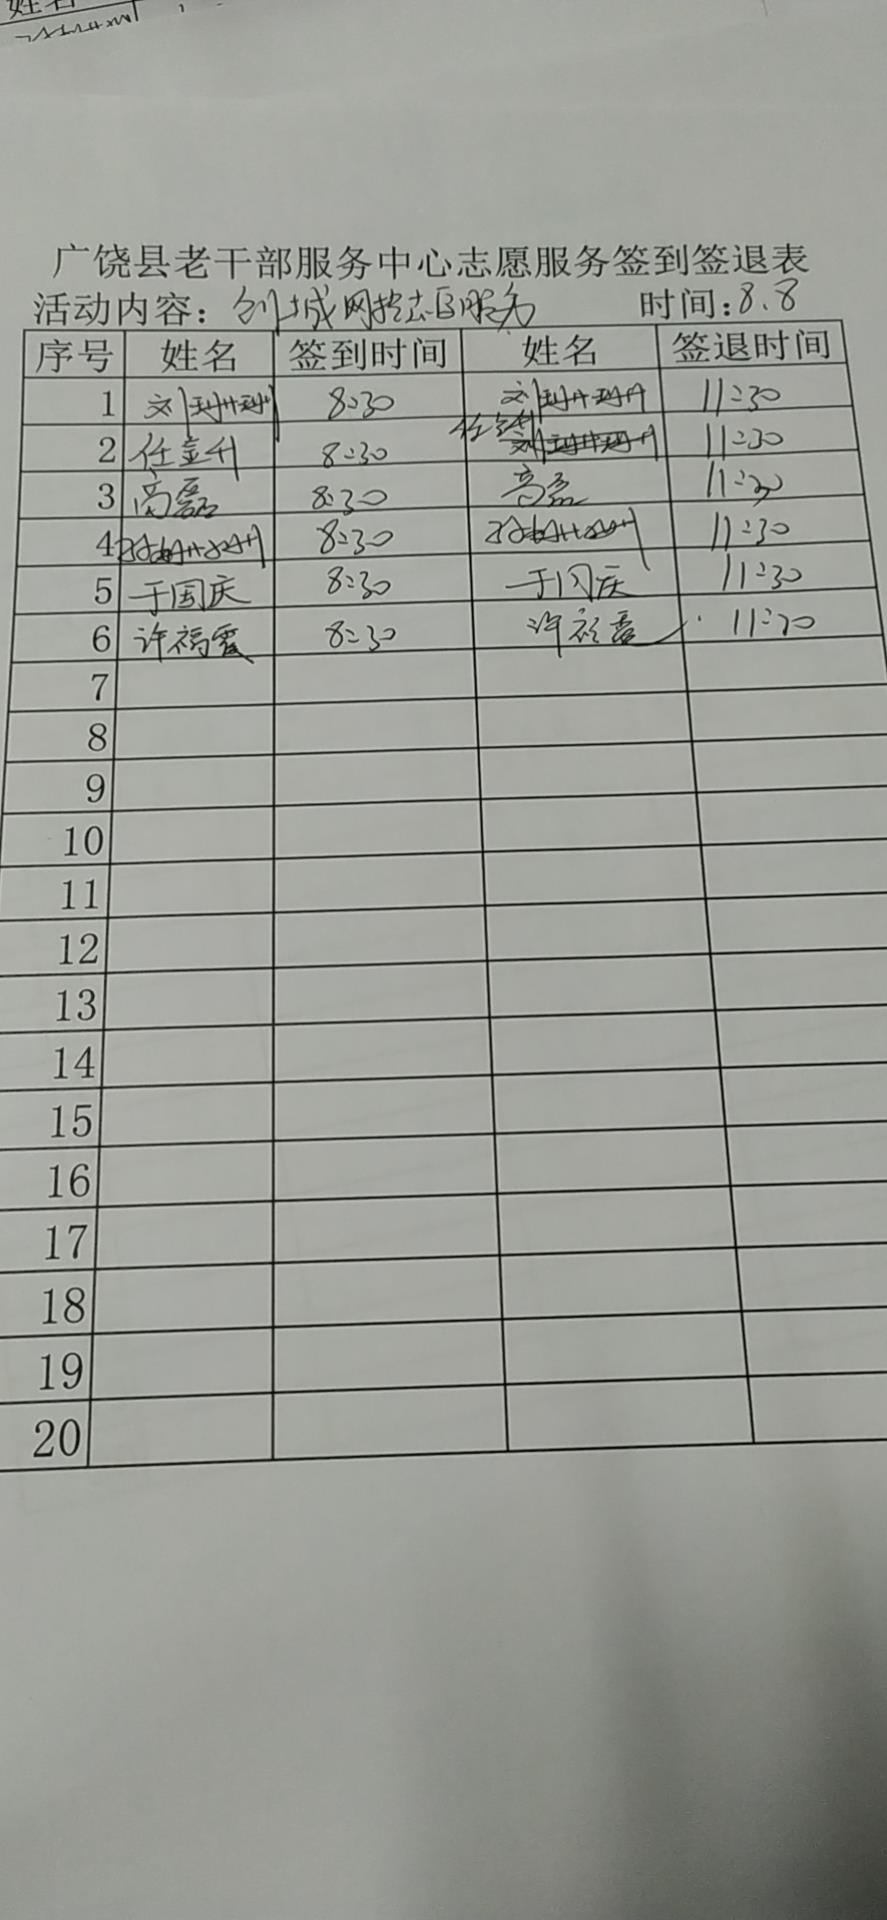 姓名
广饶县老干部服务中心志愿服务签到签退表
活动内容：创城网格志愿服务 时间：8.8
序号 姓名 签到时间 姓名 签退时间
1 刘珊珊 8:30 刘珊珊 11:30
2 任金升 8:30 任金升 11:30
3 高磊 8:30 高磊 11:30
4 8:30 11:30
5 于国庆 8:30 于国庆 11:30
6 许福霞 8:30 许福霞 11:30
7
8
9
10
11
12
13
14
15
16
17
18
19
20